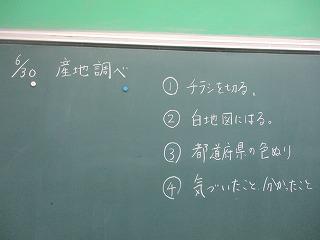 6/30 産地調べ
① チラシを切る。
② 白地図にはる。
③ 都道府県の色ぬり
④ 気づいたこと、分かったこと